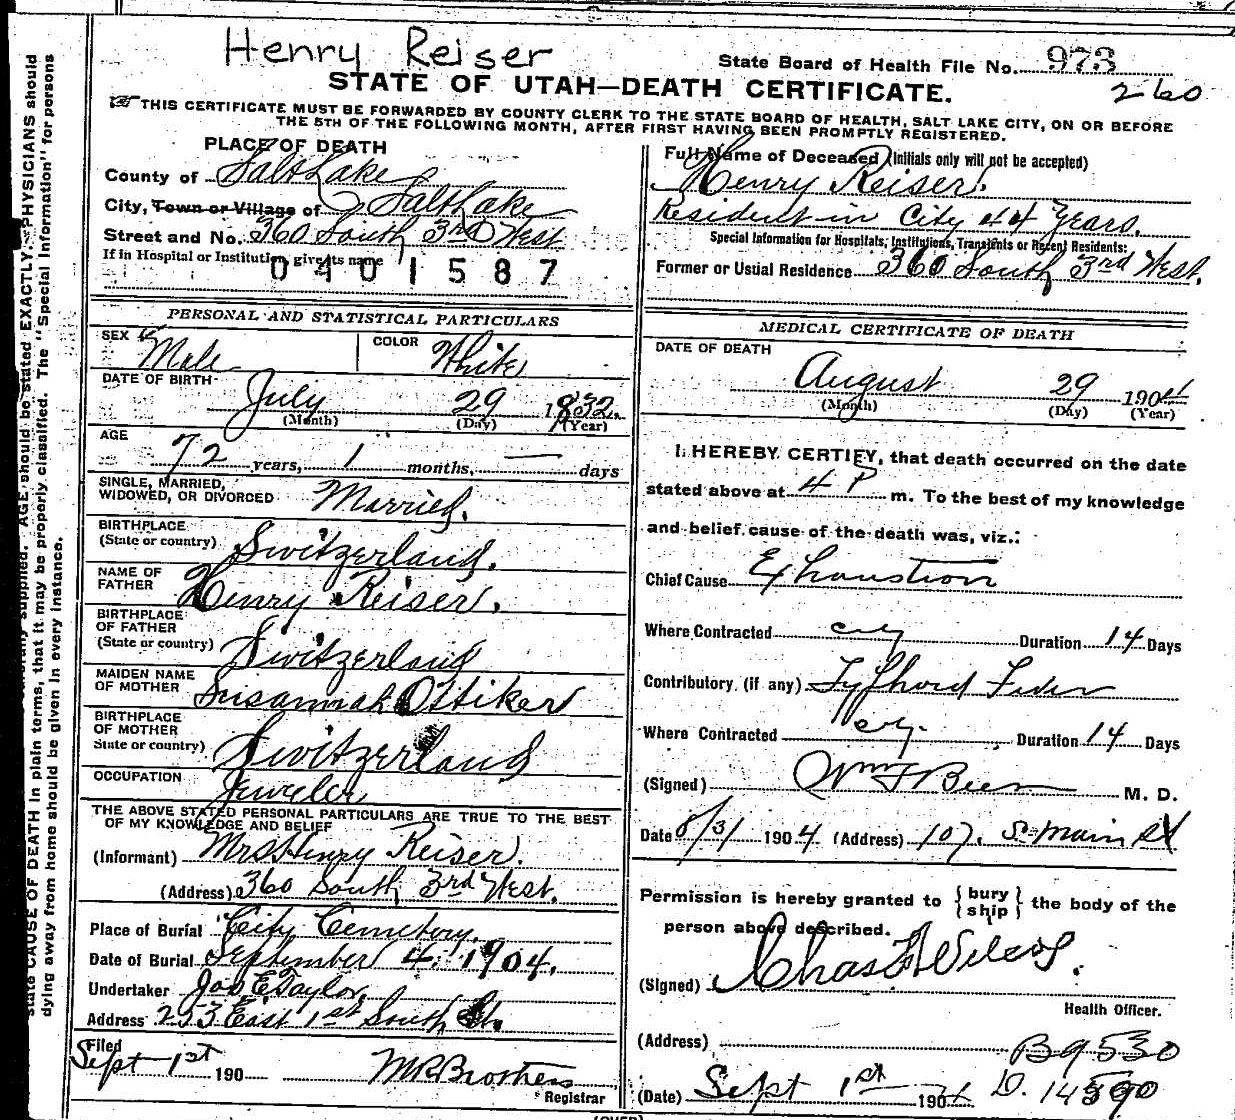 Henry Reiser
State Board of Health File No. 973
STATE OF UTAH—DEATH CERTIFICATE.
260
THIS CERTIFICATE MUST BE FORWARDED BY COUNTY CLERK TO THE STATE BOARD OF HEALTH, SALT LAKE CITY, ON OR BEFORE
THE 5TH OF THE FOLLOWING MONTH, AFTER FIRST HAVING BEEN PROMPTLY REGISTERED.
PLACE OF DEATH
County of Salt Lake
City, Town or Village of Salt Lake
Street and No. 360 South 3rd West
If in Hospital or Institution, give its name
0401587
Full Name of Deceased (Initials only will not be accepted)
Henry Reiser.
Resident in City 44 Years.
Special Information for Hospitals, Institutions, Transients or Recent Residents:
Former or Usual Residence 360 South 3rd West.
PERSONAL AND STATISTICAL PARTICULARS
SEX Male
COLOR White
DATE OF BIRTH
July 29 1832.
(Month) (Day) (Year)
AGE
72 years, 1 months, — days
SINGLE, MARRIED,
WIDOWED, OR DIVORCED Married.
BIRTHPLACE
(State or country) Switzerland.
NAME OF
FATHER Henry Reiser.
BIRTHPLACE
OF FATHER
(State or country) Switzerland
MAIDEN NAME
OF MOTHER Susannah Ottiker
BIRTHPLACE
OF MOTHER
State or country) Switzerland
OCCUPATION
Jeweler
THE ABOVE STATED PERSONAL PARTICULARS ARE TRUE TO THE BEST
OF MY KNOWLEDGE AND BELIEF
(Informant) Mrs. Henry Reiser.
(Address) 360 South 3rd West.
Place of Burial City Cemetery.
Date of Burial September 4, 1904.
Undertaker Jos E. Taylor,
Address 253 East 1st South St.
Filed
Sept 1st 190
Registrar
MEDICAL CERTIFICATE OF DEATH
DATE OF DEATH
August 29 1904
(Month) (Day) (Year)
I HEREBY CERTIFY, that death occurred on the date
stated above at 4 P m. To the best of my knowledge
and belief cause of the death was, viz.:
Chief Cause Exhaustion
Where Contracted city Duration 14 Days
Contributory (if any) Typhoid Fever
Where Contracted city Duration 14 Days
(Signed) Wm F Beer M. D.
Date 8/31 1904 (Address) 107. S. Main St
Permission is hereby granted to {bury
ship} the body of the
person above described.
(Signed) Chas
Health Officer.
(Address) B 9530
(Date) Sept 1st 1904 D. 14590
state CAUSE OF DEATH in plain terms, that it may be properly classified. The "Special Information" for persons
dying away from home should be given in every instance.
supplied. AGE should be stated EXACTLY. PHYSICIANS should
(OVER)